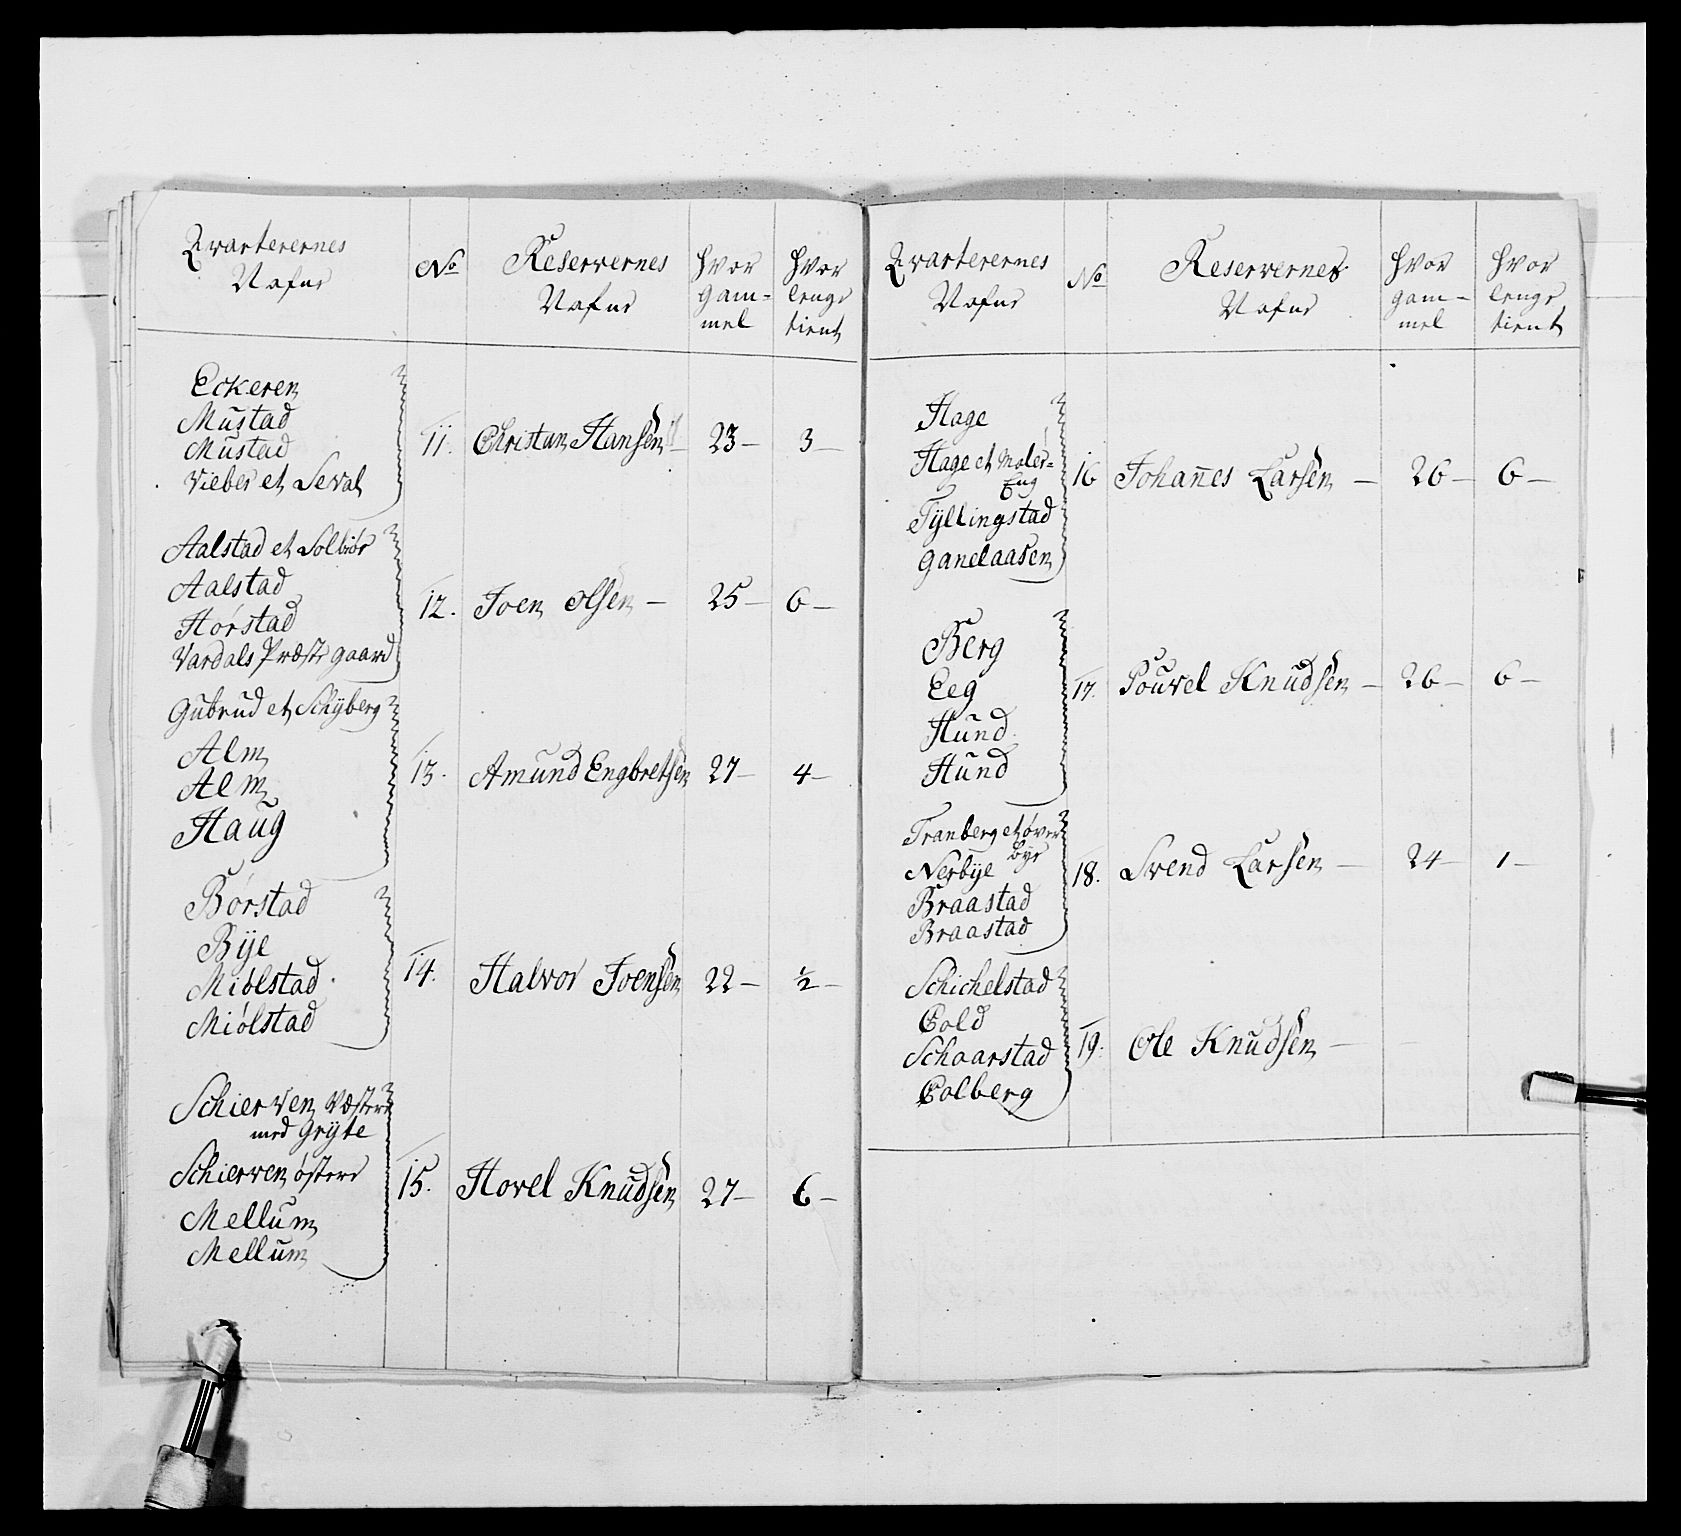 Qvarterernes
Nafne
No
Reservernes
Nafne
hvor
gam=
mel
hvor
lenge
tient
Eckeren
Mustad
Mustad
Vieber et Seval
11. Christian Hansen – 23 – 3 –
Aalstad et Solbiør
Aalstad
Hørstad
Vardals Præste gaard
12. Joen Olsen – 25 – 6 –
Gubrud et Schÿberg
Alm
Alm
Haug
13. Amund Engbretsen 27 – 4 –
Børstad
Bÿe
Miølstad
Miølstad
14. Halvor Joensen 22 – ½ –
Schierven Væstere
med Grÿte
Schierven østere
Mellum
Mellum
15. Hovel Knudsen 27 – 6 –
Qvarterernes
Nafne
No
Reservernes
Nafne
hvor
gam=
mel
hvor
lenge
tient
Hage
Hage et Moler=
Eng
Tÿllingstad
Ganelaasen
16 Johannes Larsen – 26 – 6 –
Berg
Eeg
Hund
Hund
17. Pouvel Knudsen – 26 – 6 –
Tranberg et øver
bye
Nerbÿe
Braastad
Braastad
18. Svend Larsen – 24 – 1 –
Schichelstad
Cold
Schaarstad
Colberg
19. Ole Knudsen –